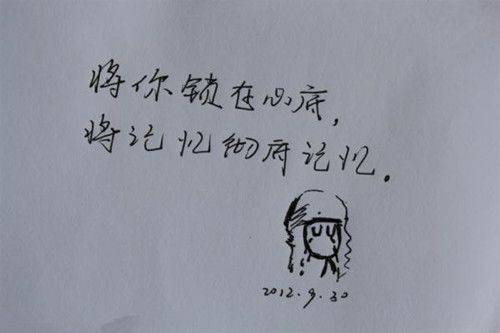 将你锁在心底，
将记忆彻底记忆。
2012.9.30